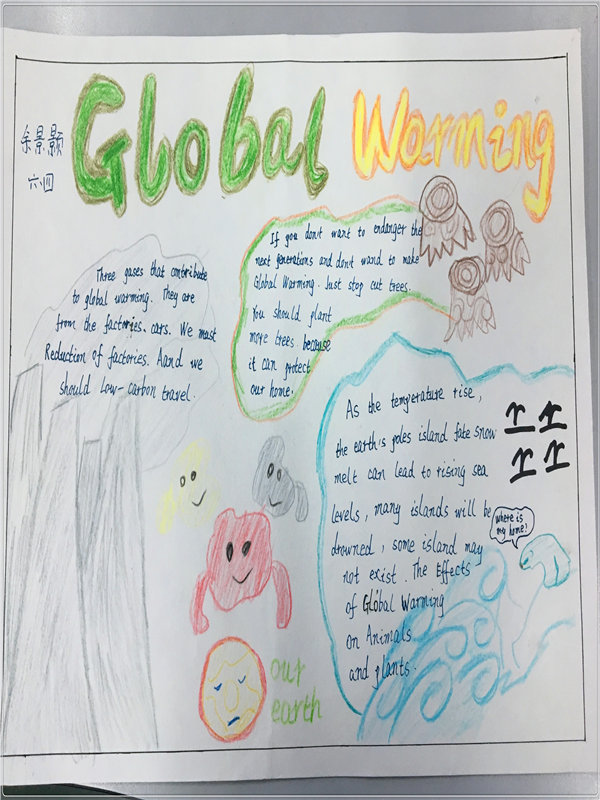 Global Warming
余景颢
六四
Three gases that contribute
to global warming. They are
from the factories. cars. We must
Reduction of factories. Aand we
should low-carbon travel.
If you don't want to endanger the
next generations and don't wand to make
Global Warming. Just stop cut trees.
You should plant
more trees because
it can protect
our home.
As the temperature rise,
the earth's poles island fate snow
melt can lead to rising sea
levels, many islands will be
drowned, some island may
not exist. The Effects
of Global Warming
on Animals
and plants.
where is
my home!
our
earth